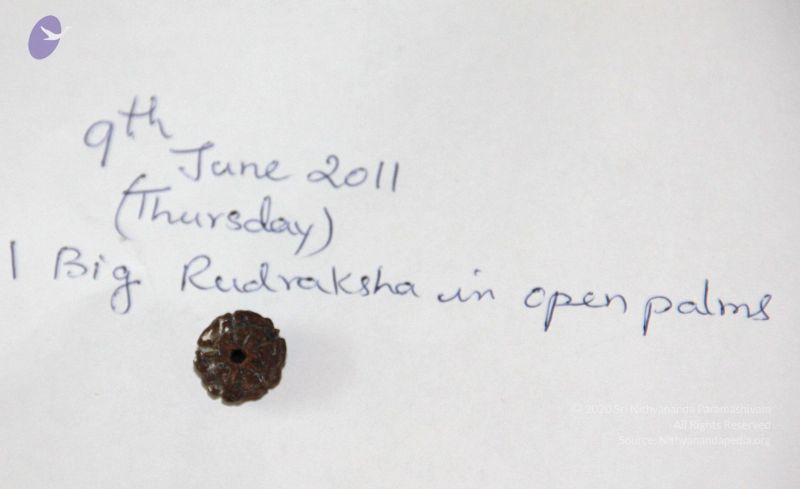 9th
June 2011
(Thursday)
1 Big Rudraksha in open palms
© 2020 Sri Nithyananda Paramashivam
All Rights Reserved
Source: Nithyanandapedia.org